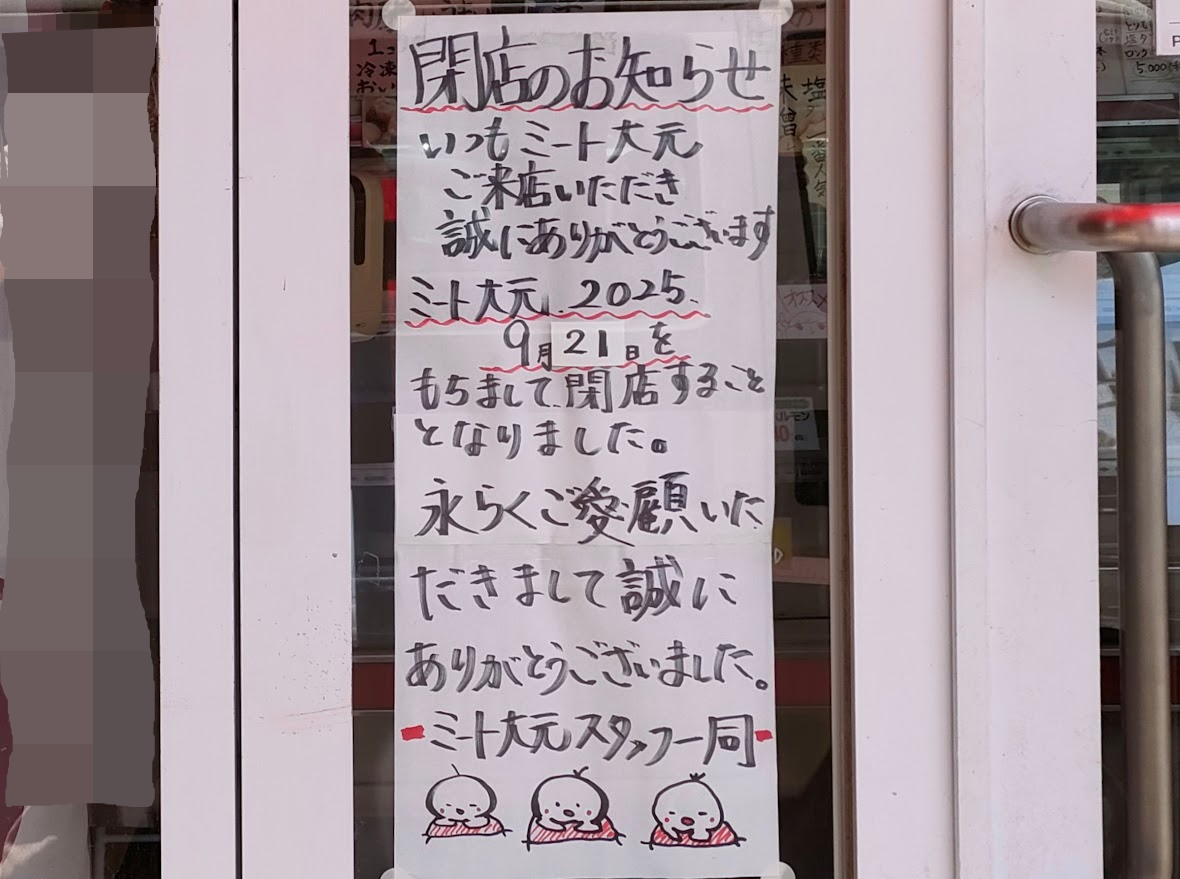 閉店のお知らせ
いつもミート大元
ご来店いただき
誠にありがとうございます
ミート大元 2025.
9月21日を
もちまして閉店すること
となりました。
永らくご愛顧いた
だきまして誠に
ありがとうございました。
ミート大元スタッフ一同
冷凍
おい
塩タ
一番人気
オススメ
5,000